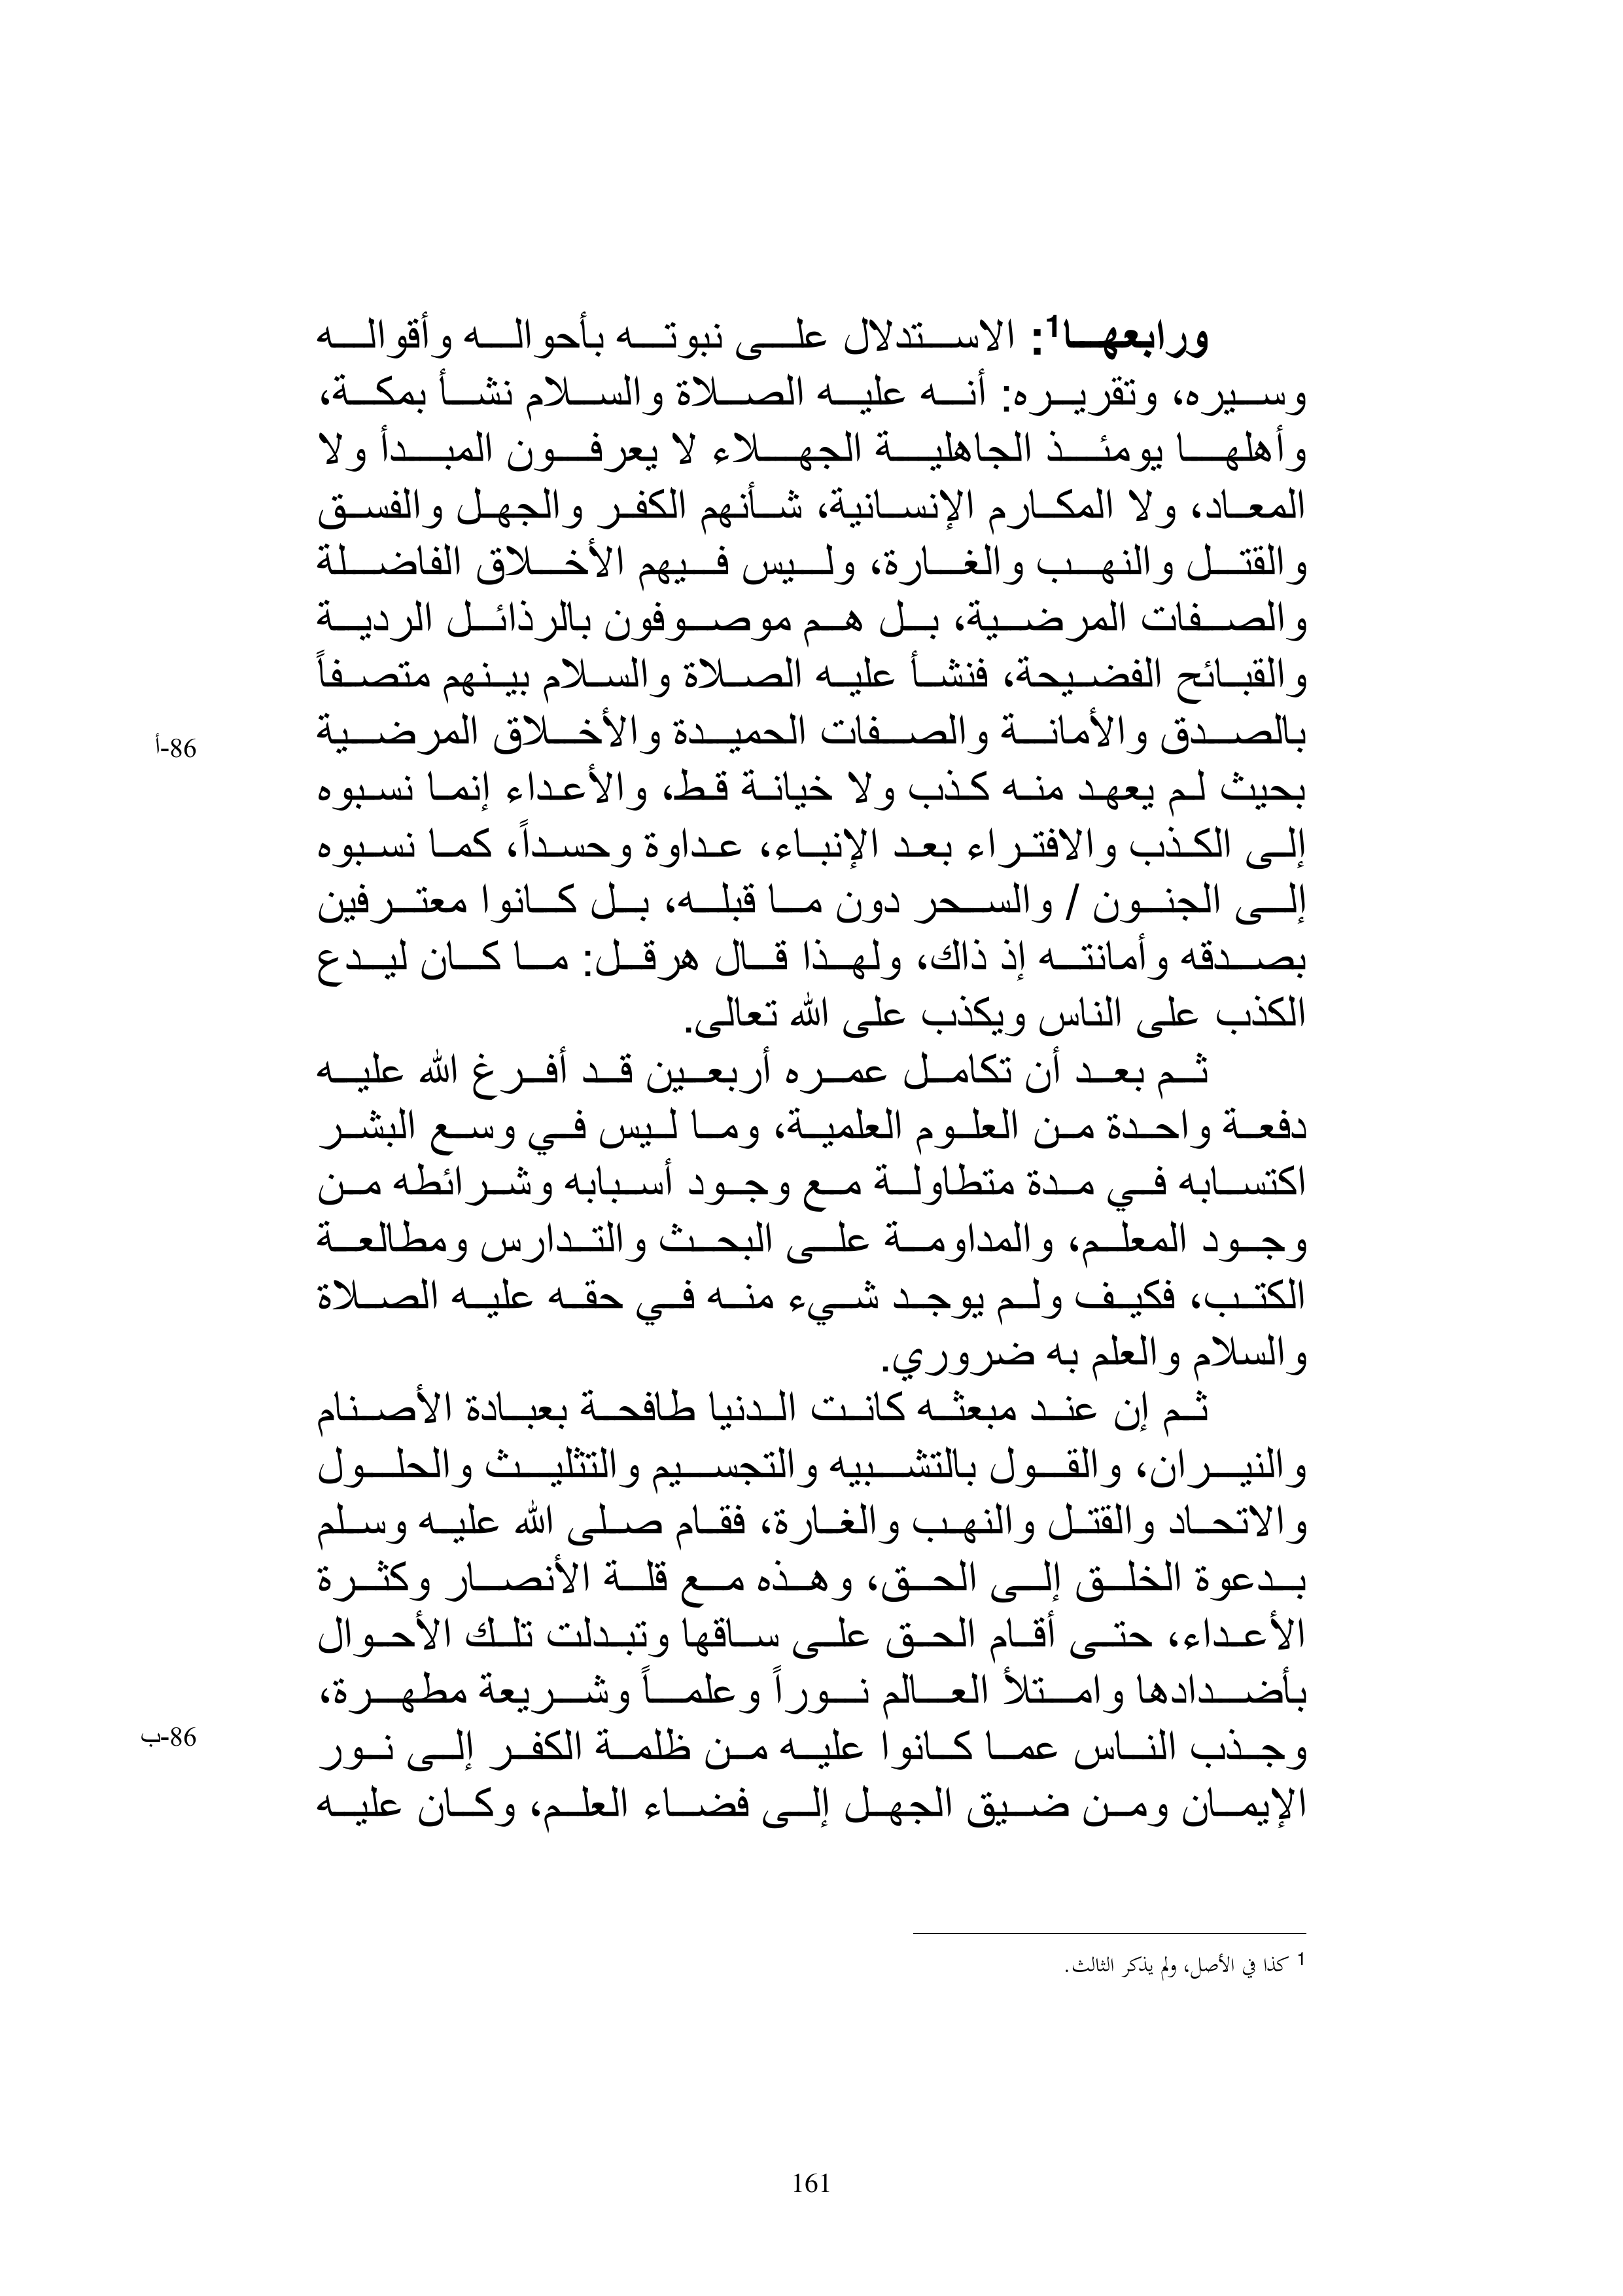 ورابعها1: الاستدلال على نبوته بأحواله وأقواله
وسيره، وتقريره: أنه عليه الصلاة والسلام نشأ بمكة،
وأهلها يومئذ الجاهلية الجهلاء لا يعرفون المبدأ ولا
المعاد، ولا المكارم الإنسانية، شأنهم الكفر والجهل والفسق
والقتل والنهب والغارة، وليس فيهم الأخلاق الفاضلة
والصفات المرضية، بل هم موصوفون بالرذائل الردية
والقبائح الفضيحة، فنشأ عليه الصلاة والسلام بينهم متصفاً
بالصدق والأمانة والصفات الحميدة والأخلاق المرضية
86-أ
بحيث لم يعهد منه كذب ولا خيانة قط، والأعداء إنما نسبوه
إلى الكذب والافتراء بعد الإنباء، عداوة وحسداً، كما نسبوه
إلى الجنون / والسحر دون ما قبله، بل كانوا معترفين
بصدقه وأمانته إذ ذاك، ولهذا قال هرقل: ما كان ليدع
الكذب على الناس ويكذب على الله تعالى.
ثم بعد أن تكامل عمره أربعين قد أفرغ الله عليه
دفعة واحدة من العلوم العلمية، وما ليس في وسع البشر
اكتسابه في مدة متطاولة مع وجود أسبابه وشرائطه من
وجود المعلم، والمداومة على البحث والتدارس ومطالعة
الكتب، فكيف ولم يوجد شيء منه في حقه عليه الصلاة
والسلام والعلم به ضروري.
ثم إن عند مبعثه كانت الدنيا طافحة بعبادة الأصنام
والنيران، والقول بالتشبيه والتجسيم والتثليث والحلول
والاتحاد والقتل والنهب والغارة، فقام صلى الله عليه وسلم
بدعوة الخلق إلى الحق، وهذه مع قلة الأنصار وكثرة
الأعداء، حتى أقام الحق على ساقها وتبدلت تلك الأحوال
بأضدادها وامتلأ العالم نوراً وعلماً وشريعة مطهرة،
86-ب
وجذب الناس عما كانوا عليه من ظلمة الكفر إلى نور
الإيمان ومن ضيق الجهل إلى فضاء العلم، وكان عليه
1 كذا في الأصل، ولم يذكر الثالث.
161